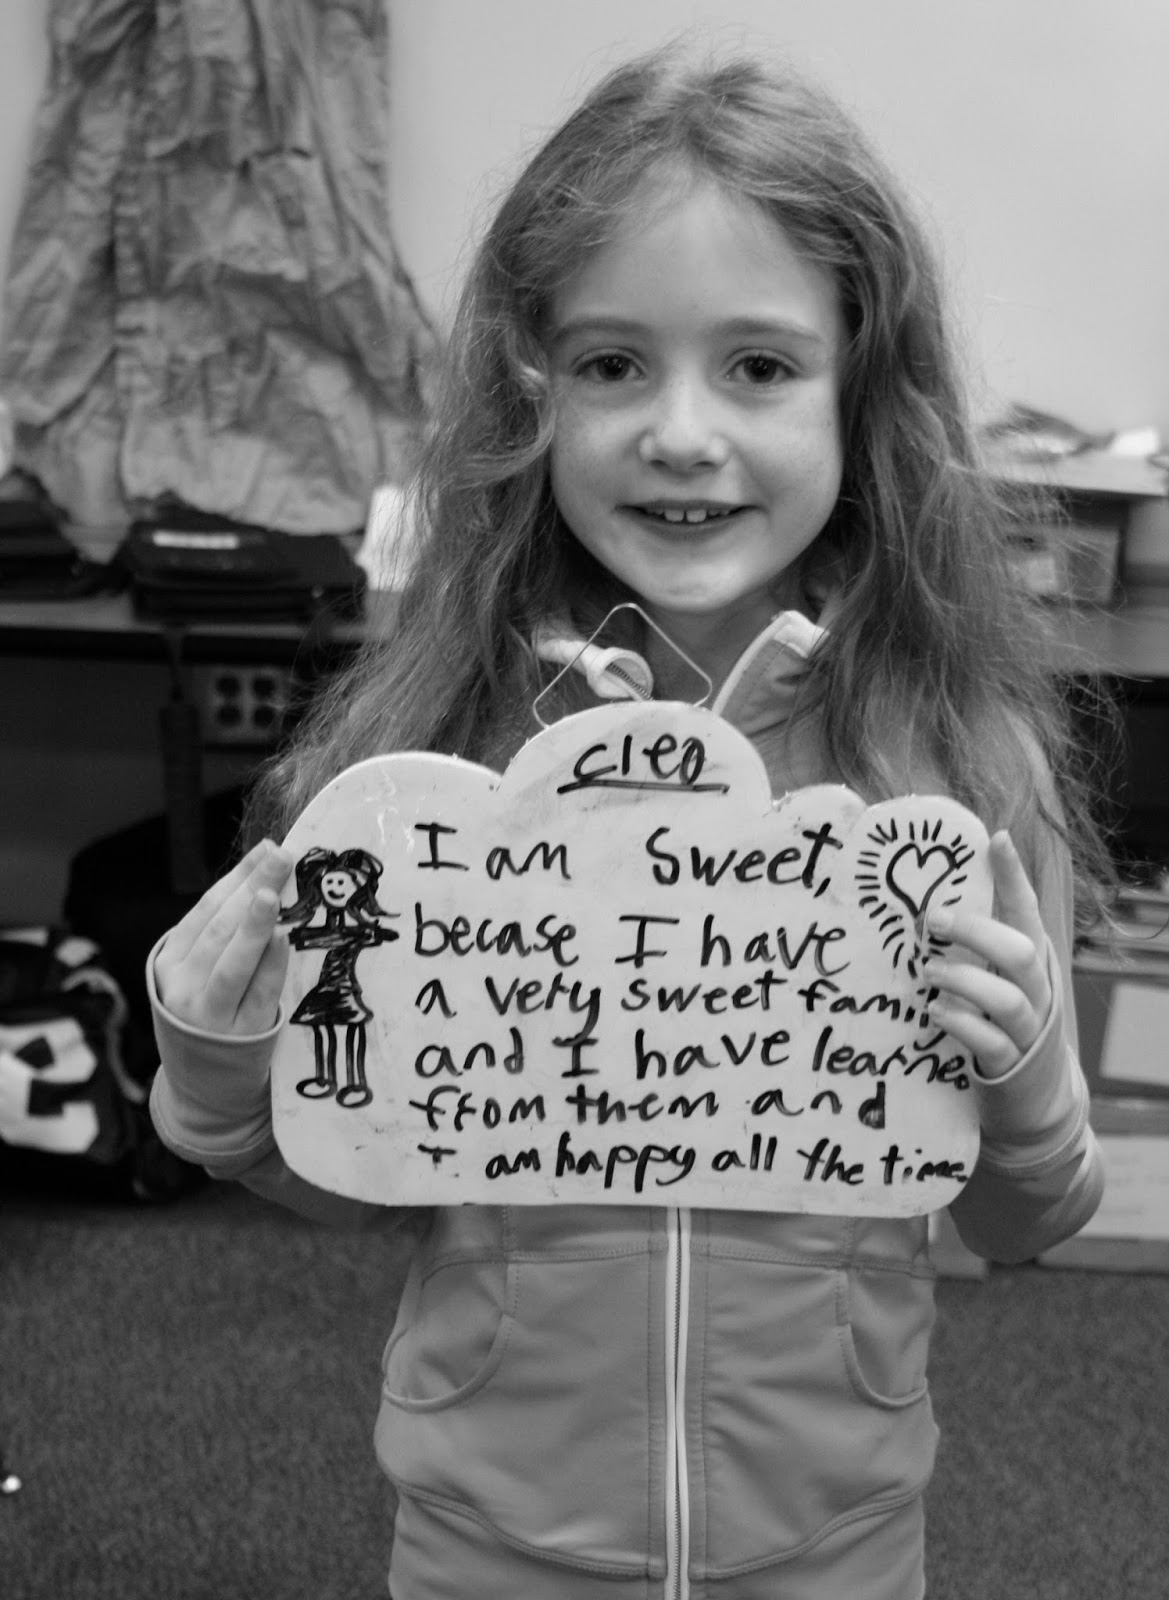 cleo
I am sweet,
becase I have
a very sweet family
and I have learned
from them and
I am happy all the time.